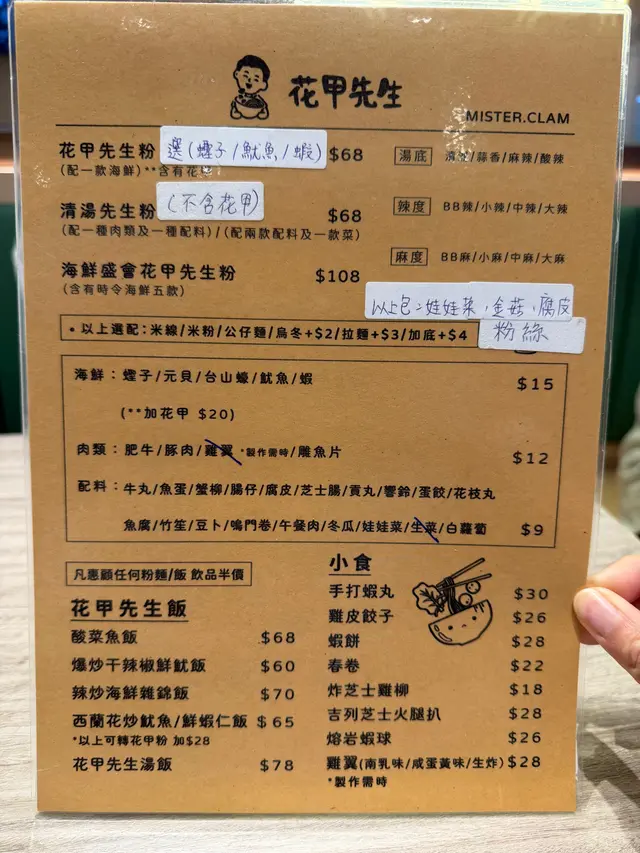 花甲先生
MISTER.CLAM
花甲先生粉 選(蟶子/魷魚/蝦) $68
(配一款海鮮)**含有花
清湯先生粉 (不含花甲) $68
(配一種肉類及一種配料)/(配兩款配料及一款菜)
海鮮盛會花甲先生粉 $108
(含有時令海鮮五款)
湯底 清 /蒜香/麻辣/酸辣
辣度 BB辣/小辣/中辣/大辣
麻度 BB麻/小麻/中麻/大麻
以上包:娃娃菜、金菇、腐皮
粉絲
• 以上選配:米線/米粉/公仔麵/烏冬+$2/拉麵+$3/加底+$4
海鮮:蟶子/元貝/台山蠔/魷魚/蝦 $15
(**加花甲 $20)
肉類:肥牛/豚肉/雞翼 *製作需時/雕魚片 $12
配料:牛丸/魚蛋/蟹柳/腸仔/腐皮/芝士腸/貢丸/響鈴/蛋餃/花枝丸
魚腐/竹笙/豆卜/鳴門卷/午餐肉/冬瓜/娃娃菜/生菜/白蘿蔔 $9
凡惠顧任何粉麵/飯 飲品半價
花甲先生飯
酸菜魚飯 $68
爆炒干辣椒鮮魷飯 $60
辣炒海鮮雜錦飯 $70
西蘭花炒魷魚/鮮蝦仁飯 $65
*以上可轉花甲粉 加$28
花甲先生湯飯 $78
小食
手打蝦丸 $30
雞皮餃子 $26
蝦餅 $28
春卷 $22
炸芝士雞柳 $18
吉列芝士火腿扒 $28
熔岩蝦球 $26
雞翼(南乳味/咸蛋黃味/生炸) $28
*製作需時